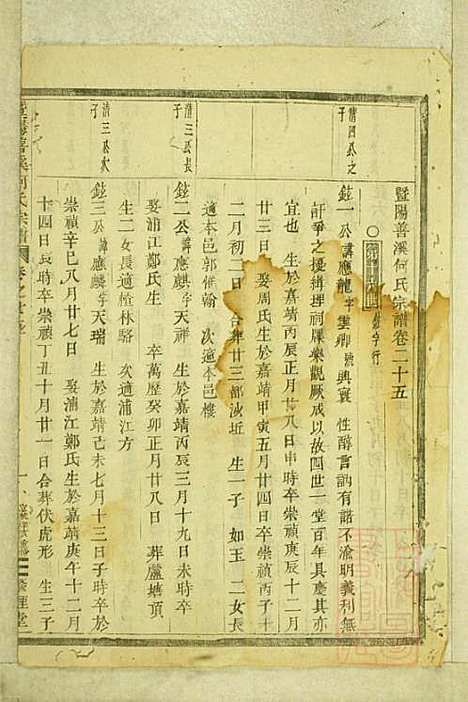 暨陽善溪何氏宗譜卷二十五
鉉字行
清四公之子
鉉一公諱應龍字雲卿號興寰 性醇言訥有諾不渝明義利無
訐爭之擾緝理祠牒樂觀厥成以故四世一堂百年具慶其亦
宜也 生於嘉靖丙辰正月廿八日申時卒崇禎庚辰十二月
廿三日 娶周氏生於嘉靖甲寅五月廿四日卒崇禎丙子十
二月初二日 合葬廿三都 生一子 如玉 二女長
適本邑郭 翰 次適本邑樓
清三公長子
鉉二公諱應麒字天祥 生於嘉靖丙辰三月十九日未時卒
娶浦江鄭氏生 卒萬歷癸卯正月廿八日 葬廬塘頂
生二女長適楂林駱 次適浦江方
清三公次子
鉉三公諱應麟字天瑞 生於嘉靖己未七月十三日子時卒於
崇禎辛巳八月廿七日 娶浦江鄭氏生於嘉靖庚午十二月
十四日辰時卒崇禎丁丑十月廿一日合葬伏虎形 生三子
何氏宗譜